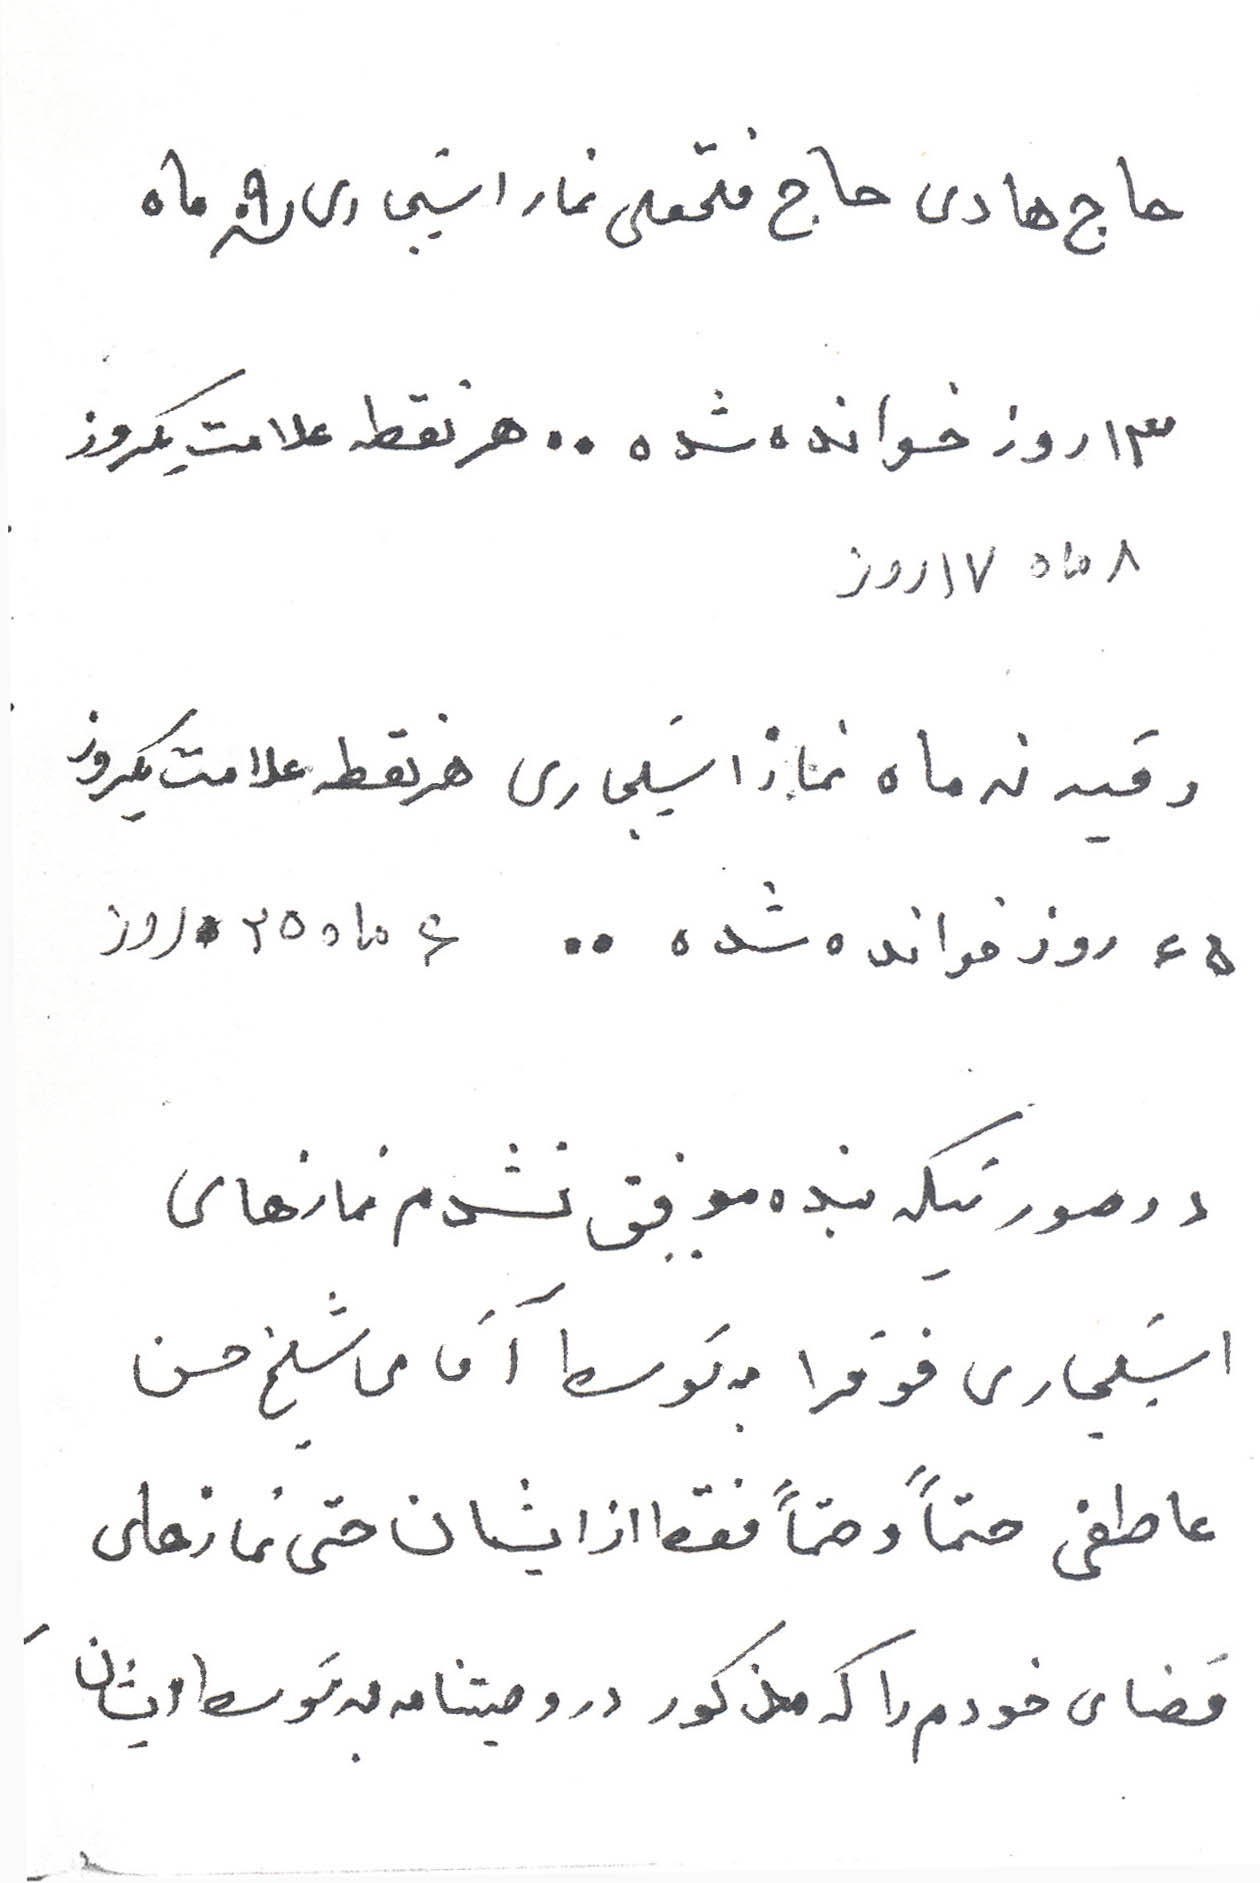 حاج هادی حاج فتحعلی نماز استیجاری ۹ ماه
۱۳ روز خوانده شده ۰۰ هر نقطه علامت یکروز
۸ ماه ۱۷ روز
رقیه نه ماه نماز استیجاری هر نقطه علامت یکروز
۶۵ روز خوانده شده ۰۰ ۶ ماه ۲۵ روز
در صورتیکه بنده موفق نشدم نمازهای
استیجاری فوق را به توسط آقای شیخ حسن
عاطفی حتماً و حتماً فقط از ایشان حتی نمازهای
قضای خودم را که مذکور در وصیتنامه به توسط ایشان